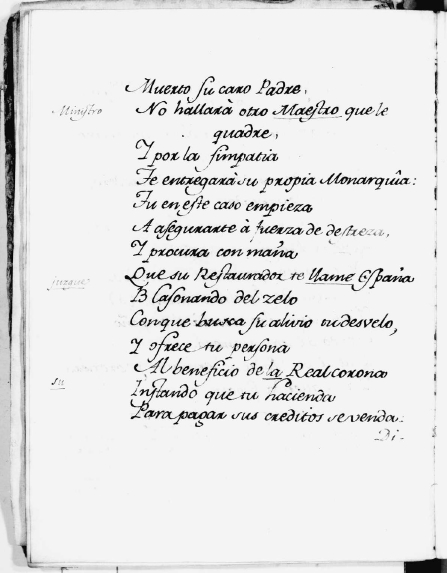 Muerto su caro Padre,
Ministro
No hallarà otro Maestro que le
quadre,
Y por la simpatia
Te entregarà su propia Monarquîa:
Tu en este caso empieza
A asegurarte à fuerza de destreza,
Y procura con maña
juzgue
Que su Restaurador te llame España
Blasonando del zelo
Conque busca su alivio tu desvelo,
Y ofrece tu persona
Al beneficio de la Real corona
su
Instando que tu hacienda
Para pagar sus creditos se venda.
Di-